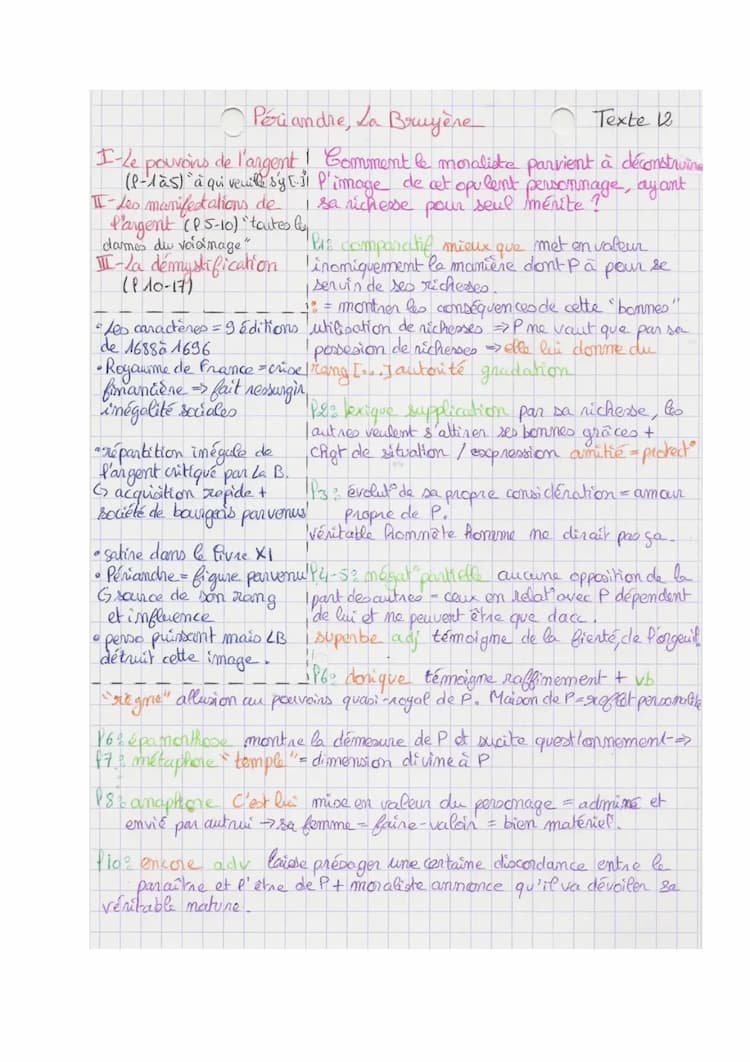 Périandre, La Bruyère
Texte 12
I-Le pouvoirs de l'argent
(l-1à5) "à qui veuille s'y [..]
II-Les manifestations de
l'argent (l 5-10) "toutes les
dames du voisinage"
III-La démystification
(l 10-17)
• Les caractères = 9 éditions
de 1688 à 1696
• Royaume de France = crise
financière => fait ressurgir
inégalité sociales
• répartition inégale de
l'argent critiqué par La B.
↳ acquisition rapide +
société de bourgeois parvenus
• satire dans le livre XI
• Périandre = figure parvenu
↳ source de son rang
et influence
• perso puissant mais LB
détruit cette image.
Comment le moraliste parvient à déconstruire
l'image de cet opulent personnage, ayant
sa richesse pour seul mérite ?
l1: comparatif mieux que met en valeur
ironiquement la manière dont P à pour se
servir de ses richesses.
: = montrer les conséquences de cette "bonnes"
utilisation de richesses => P ne vaut que par sa
possesion de richesses => elle lui donne du
rang [...] autorité gradation
l2: lexique supplication par sa richesse, les
autres veulent s'attirer ses bonnes grâces +
chgt de situation / expression amitié = protect°
l3: évolut° de sa propre considération = amour
propre de P.
véritable honnête homme ne dirait pas ça.
l4-5: négat° partielle aucune opposition de la
part des autres - ceux en relat° avec P dépendent
de lui et ne peuvent être que dacc.
superbe adj témoigne de la fierté, de l'orgeuil
l6: dorique témoigne raffinement + vb
"règne" allusion au pouvoirs quasi-royal de P. Maison de P = reflet personalité
l6: épanorthose montre la démesure de P et sucite questionnement =>
l7: métaphore "temple" = dimension divine à P
l8: anaphore C'est lui mise en valeur du personage = admiré et
envié par autrui → sa femme = faire-valoir = bien matériel.
l10: encore adv laisse présager une certaine discordance entre le
paraître et l'être de P + moraliste annonce qu'il va dévoiler sa
véritable nature.